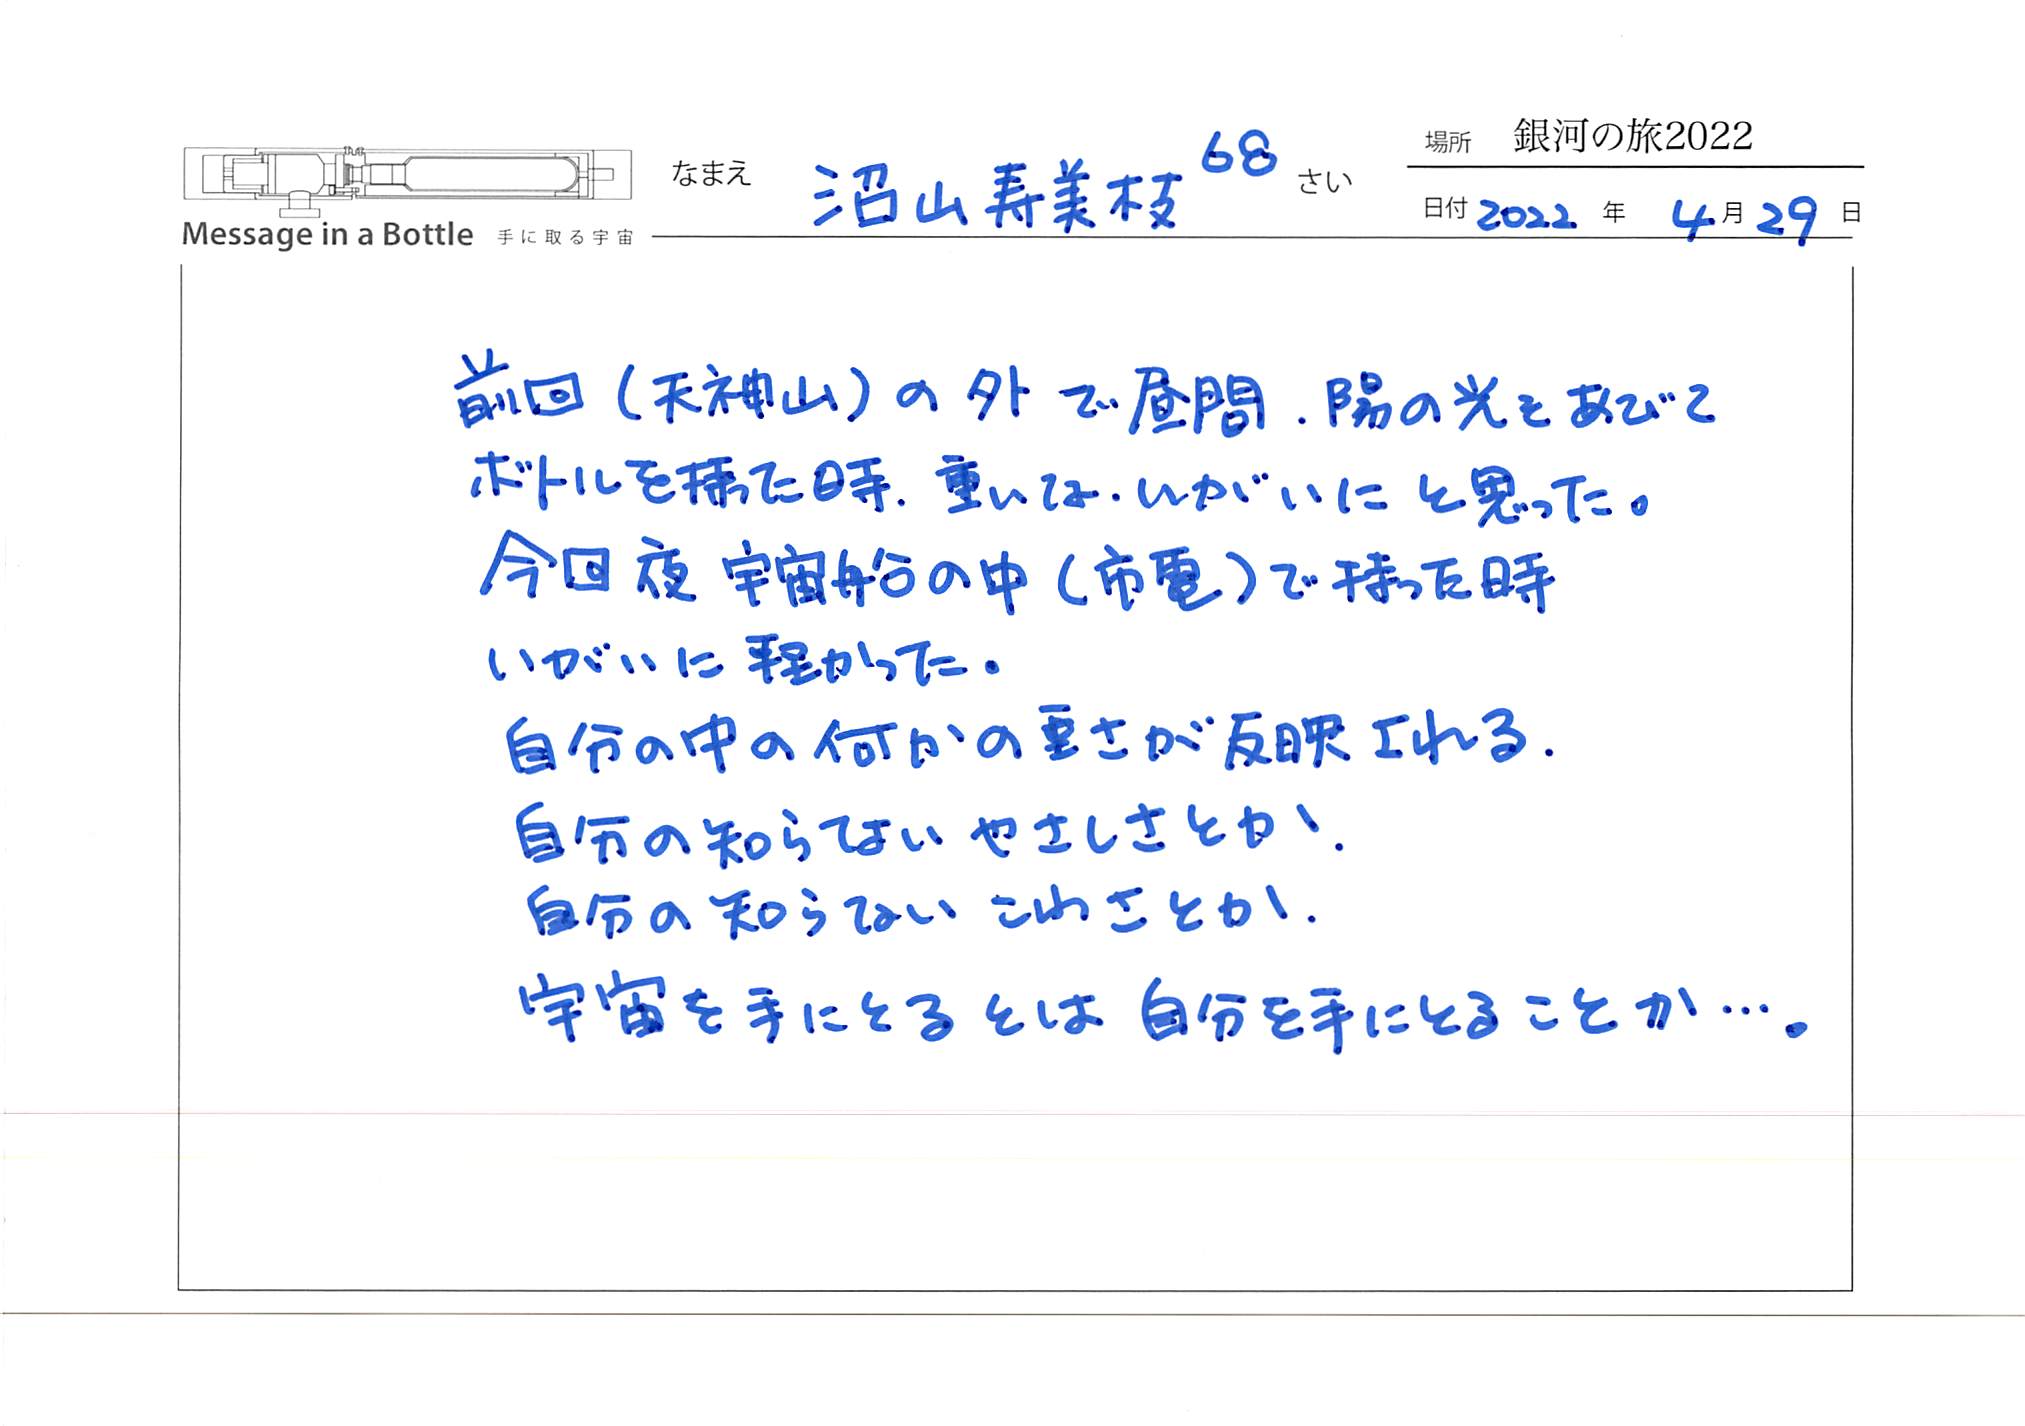 Message in a Bottle 手に取る宇宙
なまえ 沼山寿美枝 68 さい
場所 銀河の旅2022
日付 2022 年 4 月 29 日
前回(天神山)の外で昼間、陽の光をあびて
ボトルを持った時、重いな、いがいにと思った。
今回夜宇宙船の中(市電)で持った時
いがいに軽かった。
自分の中の何かの重さが反映される、
自分の知らないやさしさとか、
自分の知らないこわさとか、
宇宙を手にとるとは自分を手にとることか…。